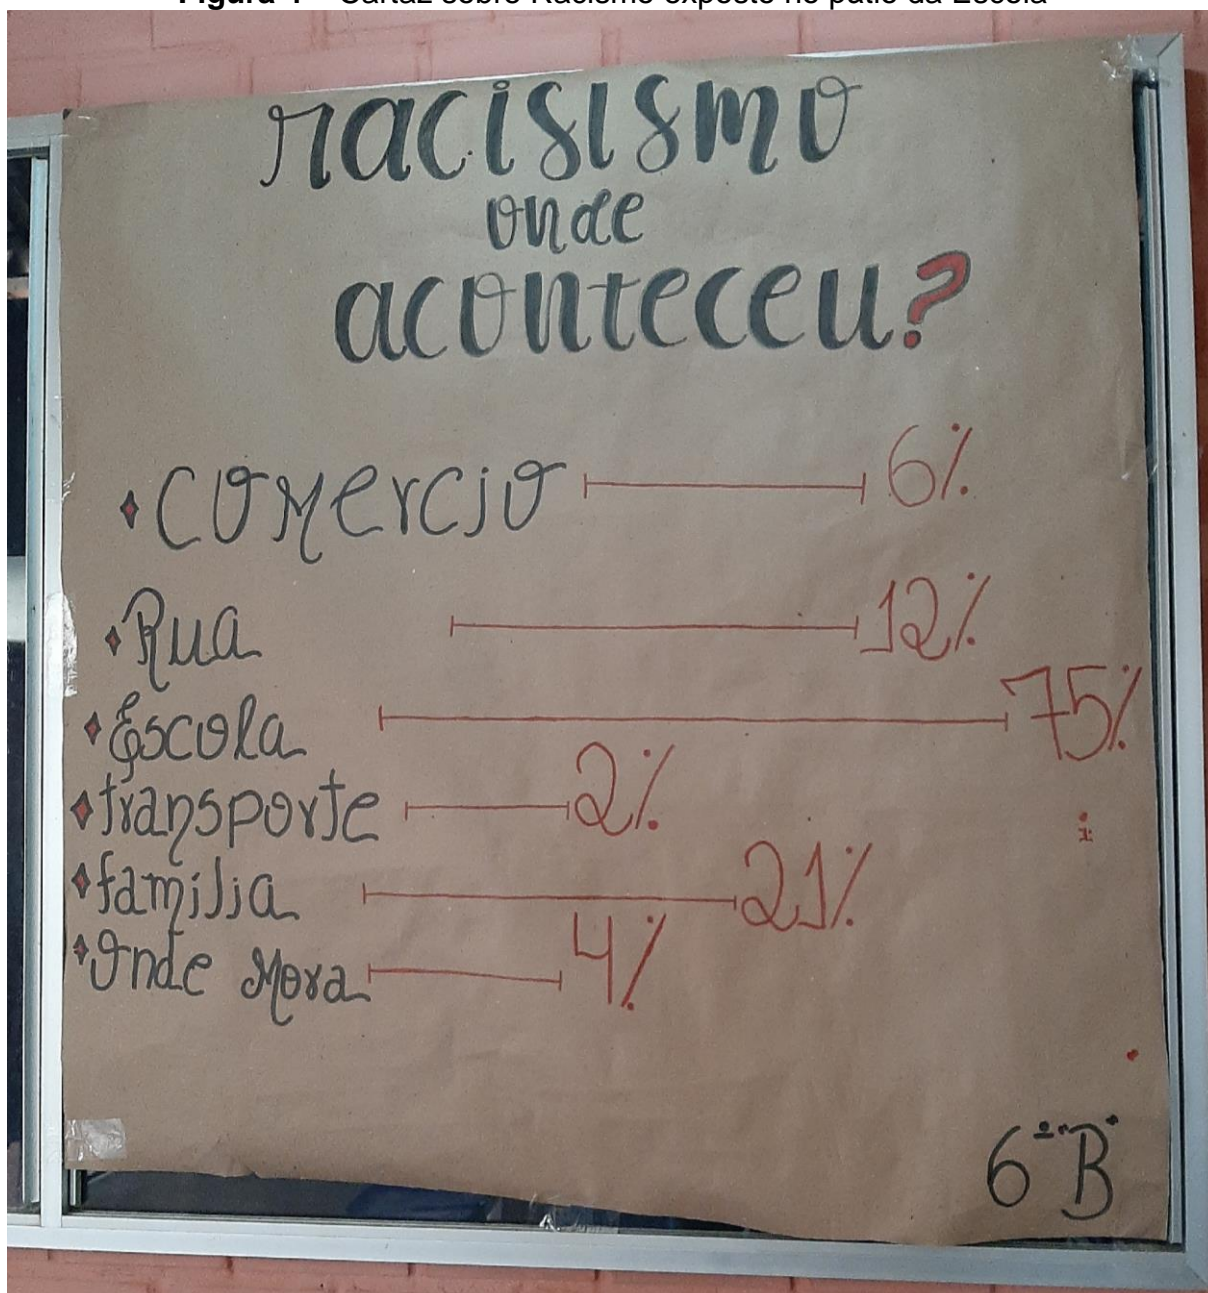 racisismo
onde
aconteceu?
Comercio 6%
Rua 12%
Escola 75%
transporte 2%
família 21%
Onde Mora 4%
6º "B"